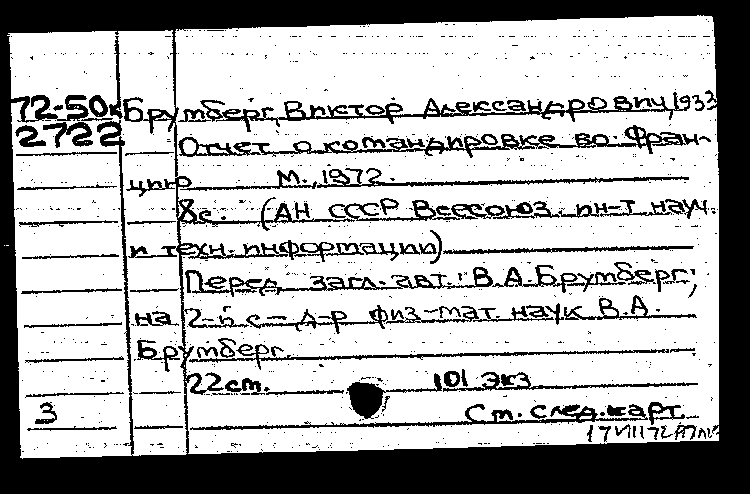 72-50к Брумберг, Виктор Александрович, 1933
2722 Отчет о командировке во Фран-
цию М., 1972.
8с. (АН СССР Всесоюз. ин-т науч.
и техн. информации)
Перед загл. авт.: В.А. Брумберг;
на 2-й с - д-р физ-мат. наук В.А.
Брумберг.
22 см. 101 экз
3 См. след. карт.
17 VIII 72